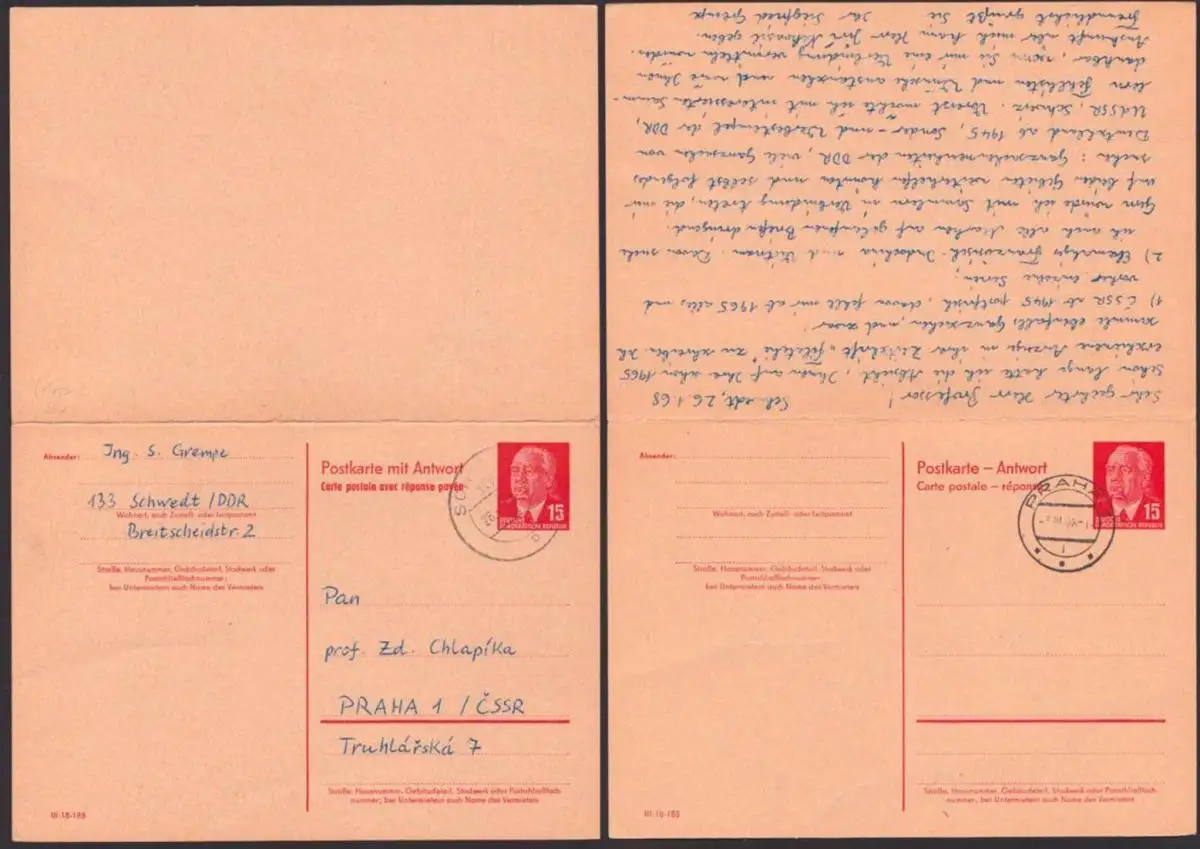 Absender:
Ing. S. Grempe
133 Schwedt/DDR
Wohnort, auch Zustell- oder Leitpostamt
Breitscheidstr. 2
Straße, Hausnummer, Gebäudeteil, Stockwerk oder
Postschließfachnummer;
bei Untermietern auch Name des Vermieters
Postkarte mit Antwort
Carte postale avec réponse payée
15
DEUTSCHE
DEMOKRATISCHE REPUBLIK
Pan
prof. Zd. Chlapíka
PRAHA 1 / ČSSR
Truhlářská 7
Straße, Hausnummer, Gebäudeteil, Stockwerk oder Postschließfach-
nummer; bei Untermietern auch Name des Vermieters
III-18-185
Schwedt, 26.1.68
Sehr geehrter Herr Professor!
Schon lange hatte ich die Absicht, Ihnen auf Ihre schon 1965
erschienene Anzeige in der Zeitschrift "filatelie" zu schreiben. Ich
sammle ebenfalls Ganzsachen, und zwar
1) ČSSR ab 1945 postfrisch, davon fehlt mir ab 1965 alles und
vorher einzelne Serien;
2) Ehemaliges Französisch-Indochina und Vietnam. Davon suche
ich auch alle Marken auf gelaufenen Briefen dringend.
Gern würde ich mit Sammlern in Verbindung treten, die mir
auf beiden Gebieten weiterhelfen könnten und selbst folgendes
suchen: Ganzsachenneuheiten der DDR, viele Ganzsachen von
Deutschland ab 1945, Sonder- und Werbestempel der DDR,
UdSSR, Schweiz. Vorerst möchte ich mit interessierten Samm-
lern Fehllisten und Wünsche austauschen und wäre Ihnen
dankbar, wenn Sie mir eine Verbindung vermitteln würden.
Auskunft über mich kann Herr Jiří Nekvasil geben.
Freundlichst grüßt Sie Ihr Siegfried Grempe
Absender:
Wohnort, auch Zustell- oder Leitpostamt
Straße, Hausnummer, Gebäudeteil, Stockwerk oder
Postschließfachnummer;
bei Untermietern auch Name des Vermieters
Postkarte – Antwort
Carte postale – réponse
PRAHA
1
15
DEUTSCHE
DEMOKRATISCHE REPUBLIK
Straße, Hausnummer, Gebäudeteil, Stockwerk oder Postschließfach-
nummer; bei Untermietern auch Name des Vermieters
III-18-185